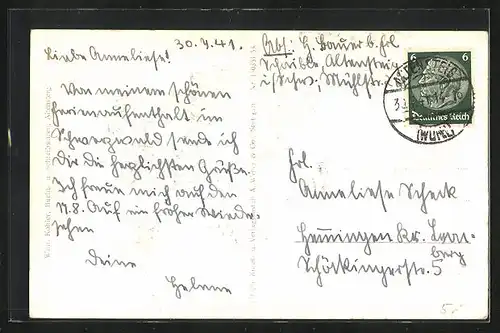 30.7.41.
Liebe Anneliese!
Von meinem schönen
Ferienaufenthalt im
Schwarzwald sende ich
Dir die herzlichsten Grüße.
Ich freue mich auf den
11.8. Auf ein frohes Wieder-
sehen
Deine
Helene
Abs: H. Bauer b. Frl.
Schaible, Altensteig
i/Schw., Mühlstr.
6 6
Deutsches Reich
ALTENSTEIG
(WÜRTT)
Frl.
Anneliese Scheck
Hemmingen Kr. Leon-
berg
Schöckingerstr. 5
5.-